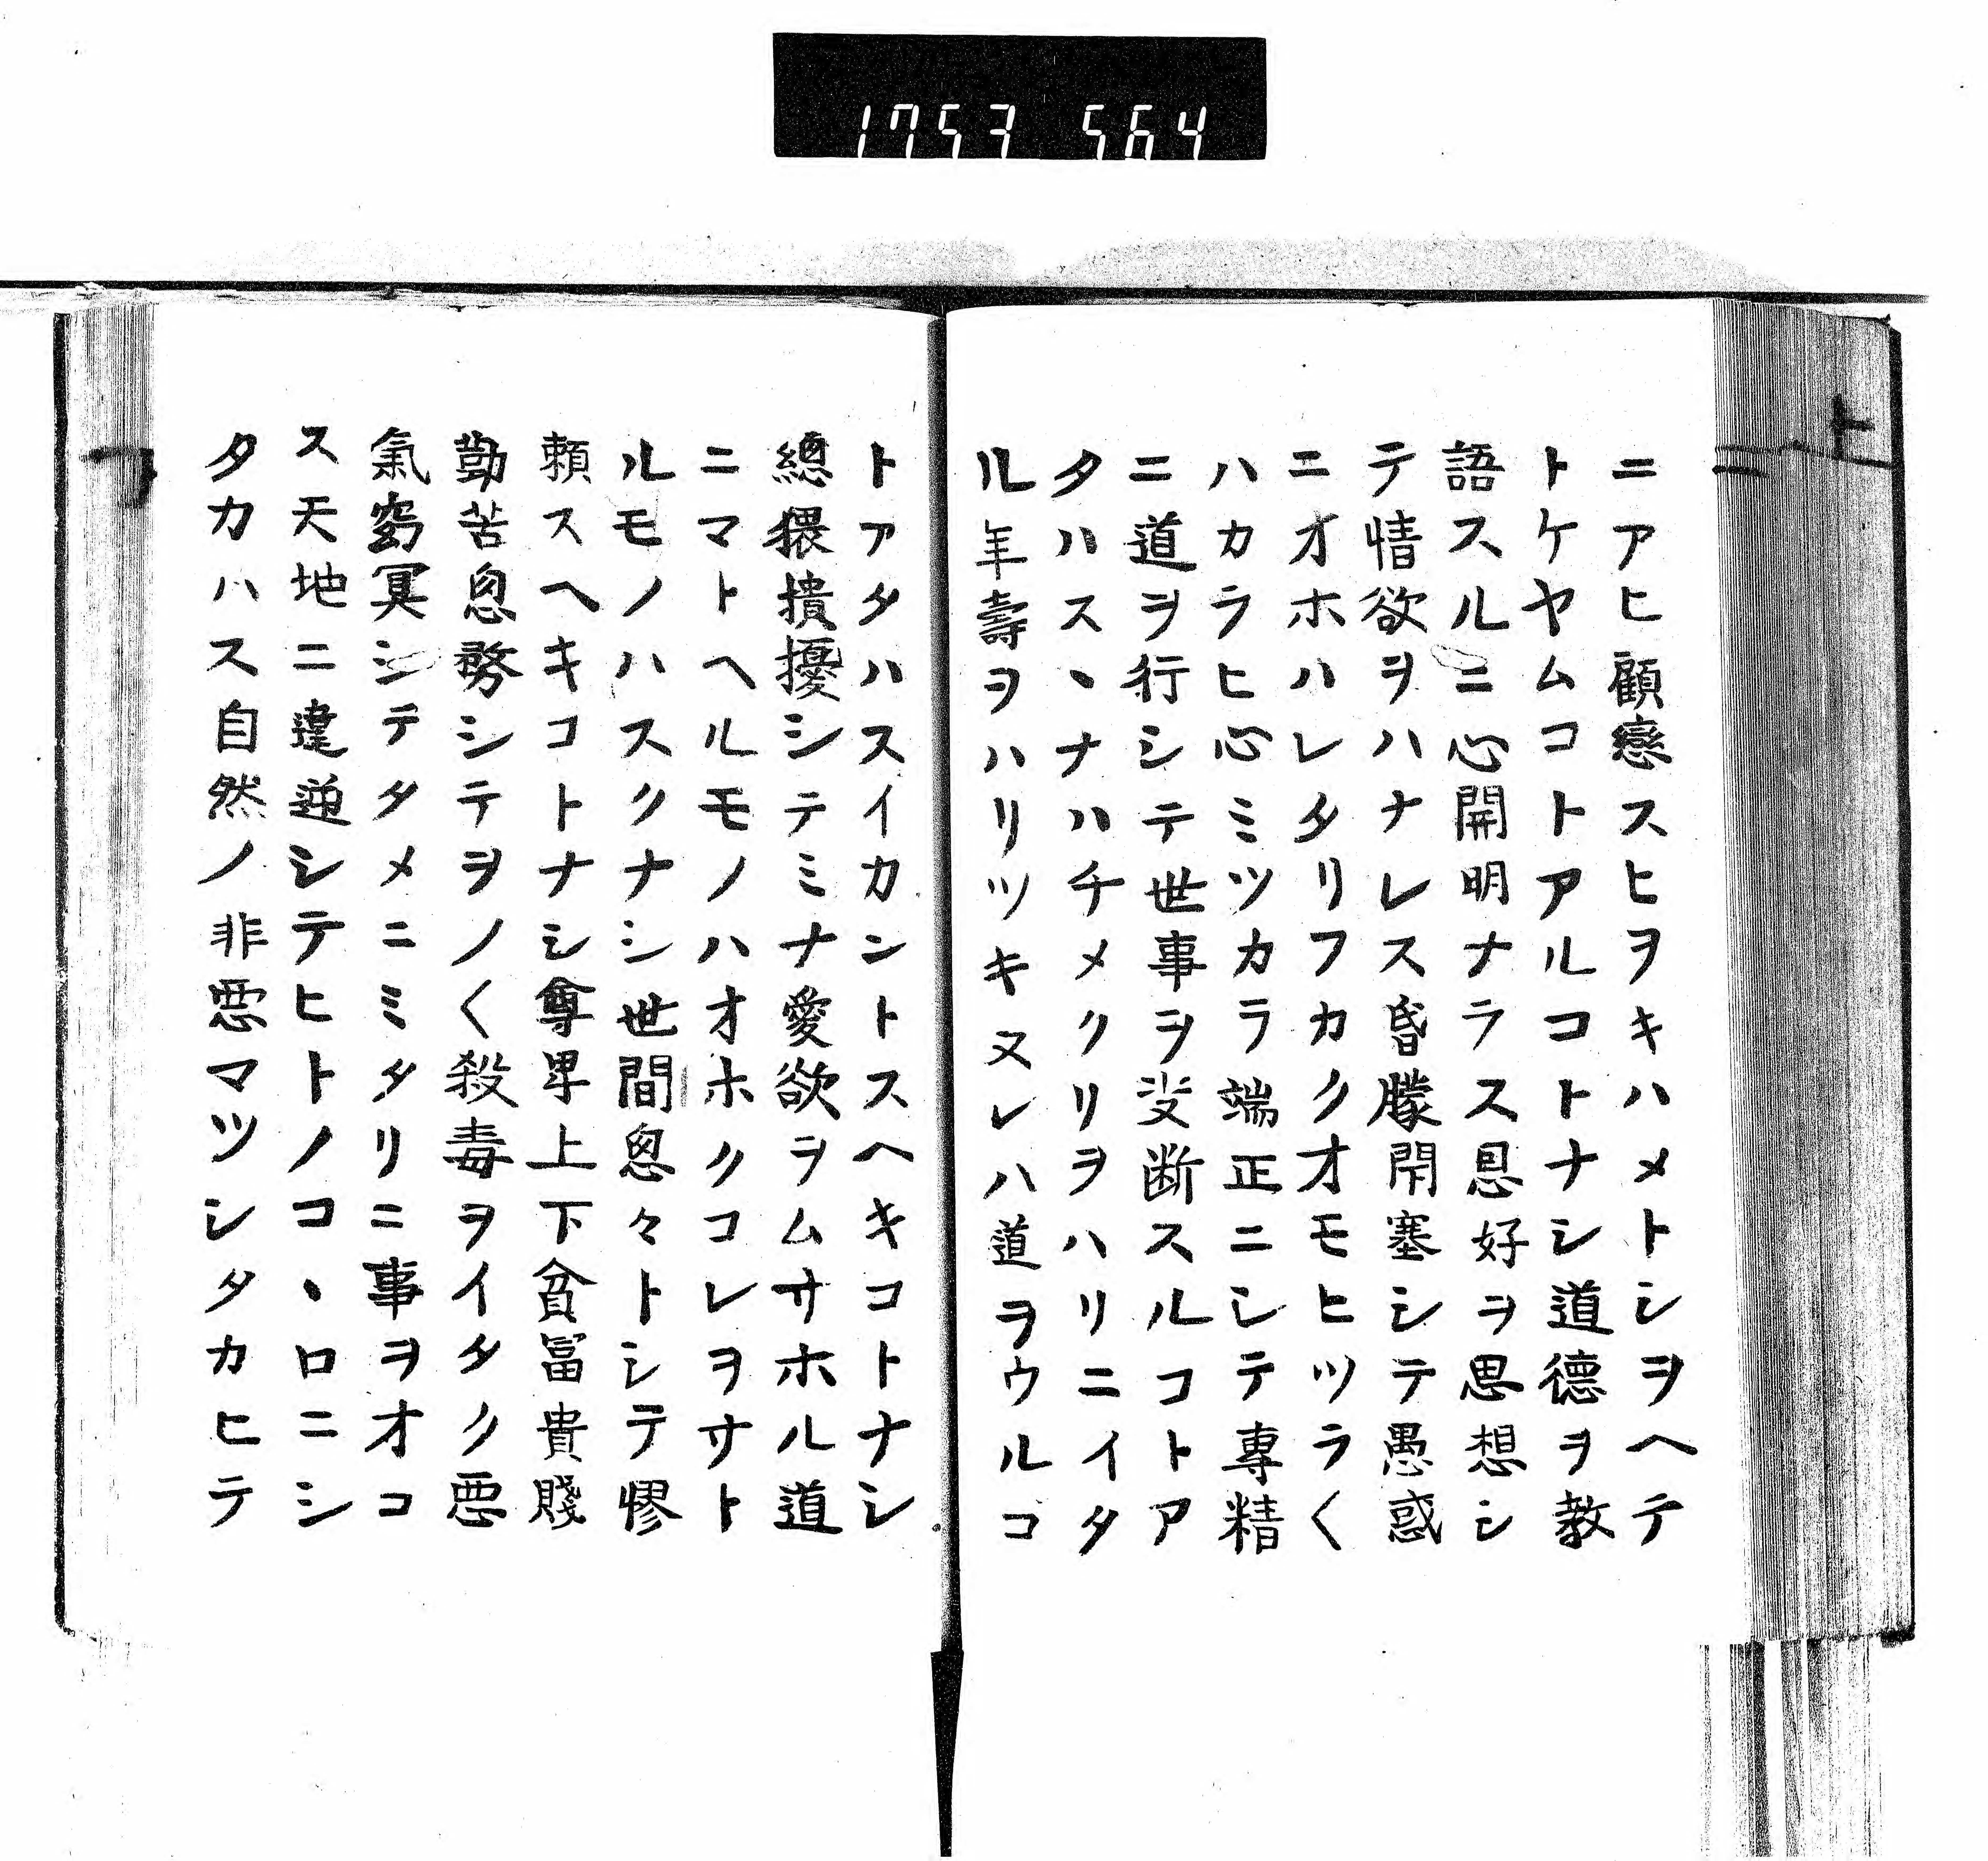 1753 564
ニアヒ顧戀スヒヲキハメトシヲヘテ
トケヤムコトアルコトナシ道德ヲ教
語スルニ心開明ナラス恩好ヲ思想シ
テ情欲ヲハナレス昏矇閇塞シテ愚惑
ニオホハレタリフカクオモヒツラ〱
ハカラヒ心ミツカラ端正ニシテ專精
ニ道ヲ行シテ世事ヲ决断スルコトア
タハスヽナハチメクリヲハリニイタ
ル年壽ヲハリツキヌレハ道ヲウルコ
トアタハスイカントスヘキコトナシ
總猥撌擾シテミナ愛欲ヲムサホル道
ニマトヘルモノハオホクコレヲサト
ルモノハスクナシ世間怱々トシテ憀
頼スヘキコトナシ尊卑上下貧冨貴賤
勤苦怱務シテヲノ〱殺毒ヲイタク悪
氣窈冥シテタメニミタリニ事ヲオコ
ス天地ニ違逆シテヒトノコヽロニシ
タカハス自然ノ非悪マツシタカヒテ